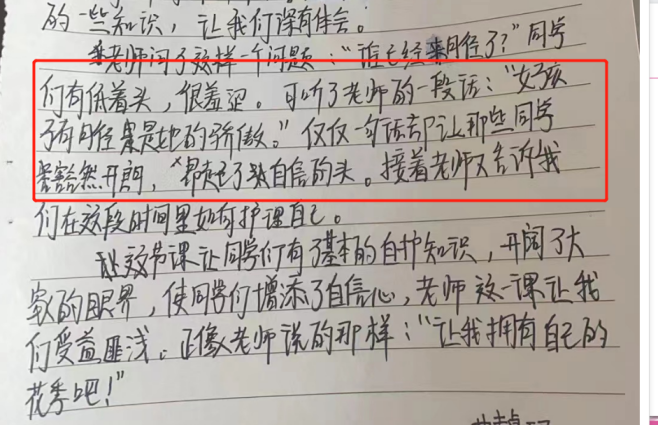 的一些知识，让我们深有体会。
老师问了这样一个问题："谁已经来月经了？"同学
们有低着头，很羞涩。可听了老师的一段话："女孩
子有月经是她的骄傲。"仅仅一句话却让那些同学
豁然开朗，昂起了自信的头。接着老师又告诉我
们在这段时间里如何护理自己。
这节课让同学们有了基本的自护知识，开阔了大
家的眼界，使同学们增添了自信心，老师这一课让我
们受益匪浅。正像老师说的那样："让我拥有自己的
花季吧！"